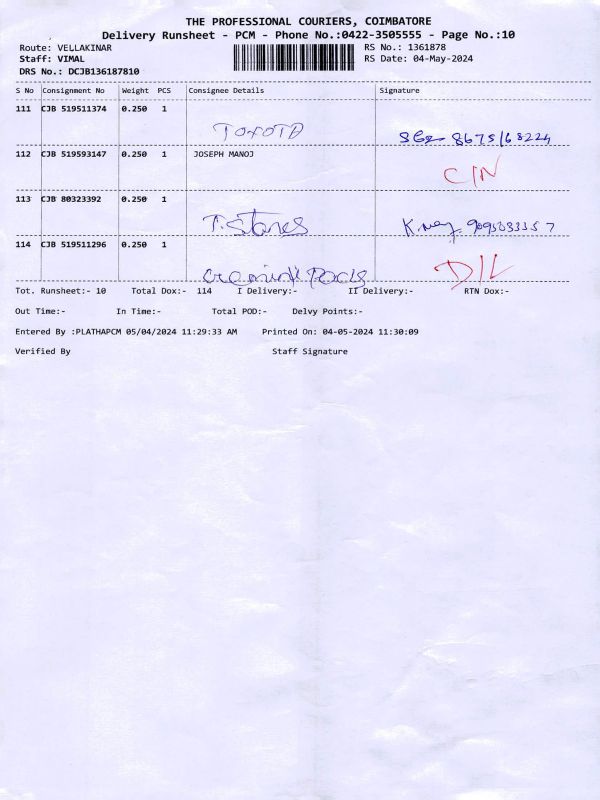 THE PROFESSIONAL COURIERS, COIMBATORE
Delivery Runsheet - PCM - Phone No.:0422-3505555 - Page No.:10
Route: VELLAKINAR RS No.: 1361878
Staff: VIMAL RS Date: 04-May-2024
DRS No.: DCJB136187810
S No Consignment No Weight PCS Consignee Details Signature
111 CJB 519511374 0.250 1
TOYOTA
112 CJB 519593147 0.250 1 JOSEPH MANOJ
C/N
113 CJB 80323392 0.250 1
T. Stanes
114 CJB 519511296 0.250 1
D/L
Tot. Runsheet:- 10 Total Dox:- 114 I Delivery:- II Delivery:- RTN Dox:-
Out Time:- In Time:- Total POD:- Delvy Points:-
Entered By :PLATHAPCM 05/04/2024 11:29:33 AM Printed On: 04-05-2024 11:30:09
Verified By Staff Signature